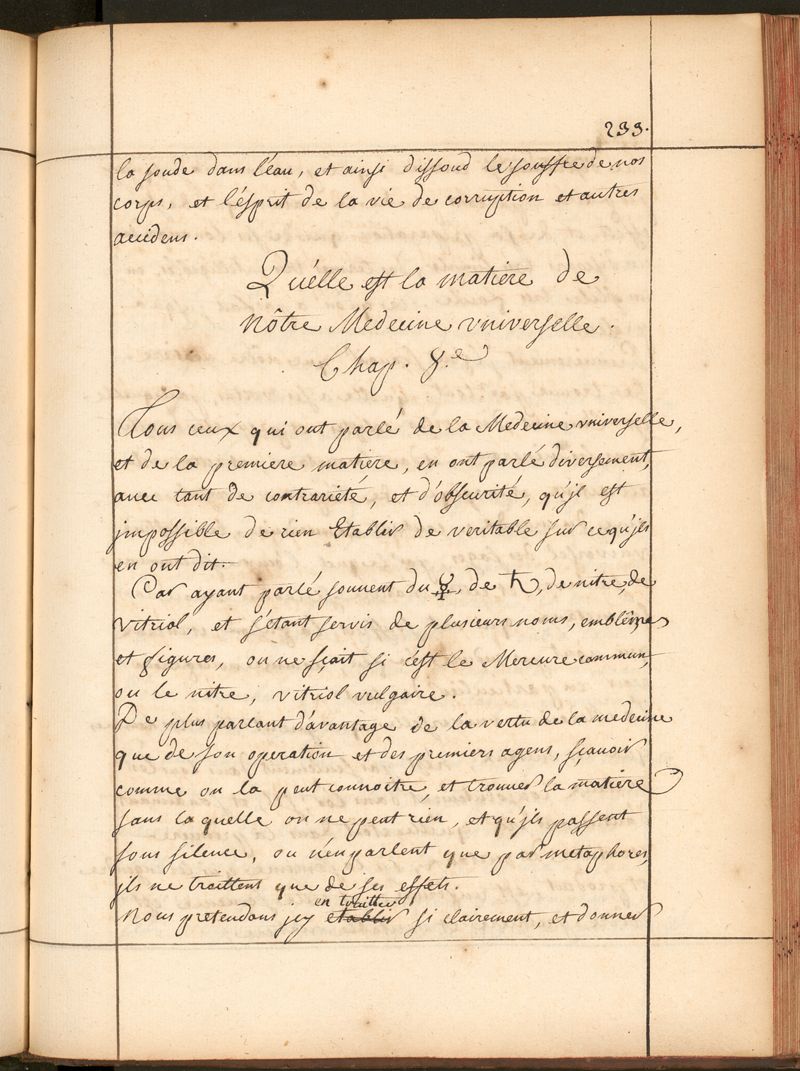 233.
la soude dans l'éau, et ainsi dissoud le souffre de nos
corps, et l'ésprit de la vie de corruption et autres
accidens.
Qu'élle est la matiere de
nôtre Medecine vniverselle.
Chap. 8.e
Tous ceux qui ont parlé de la Medecine vniverselle,
et de la premiere matiere, en ont parlé diversement,
auec tant de contrariété, et d'obscurité, qu'jl est
jmpossible de rien Etablir de veritable sur ce qu'jls
en ont dit.
Car ayant parlé souuent du ☿, de ♄, de nitre, de
vitriol, et s'étant servis de plusieurs noms, emblêmes
et figures, on ne sçait si c'est le Mercure commun,
ou le nitre, vitriol vulgaire.
De plus parlant d'avantage de la vertu de la medecine
que de son operation et des premiers agens, sçauoir
comme on la peut connoitre, et trouuer la matiere
sans laquelle on ne peut rien, et qu'jls passent
sous silence, ou n'en parlent que par metaphores,
jls ne traittent que de ses effets.
en traitter
Nous pretendons jcy etablir si clairement, et donner